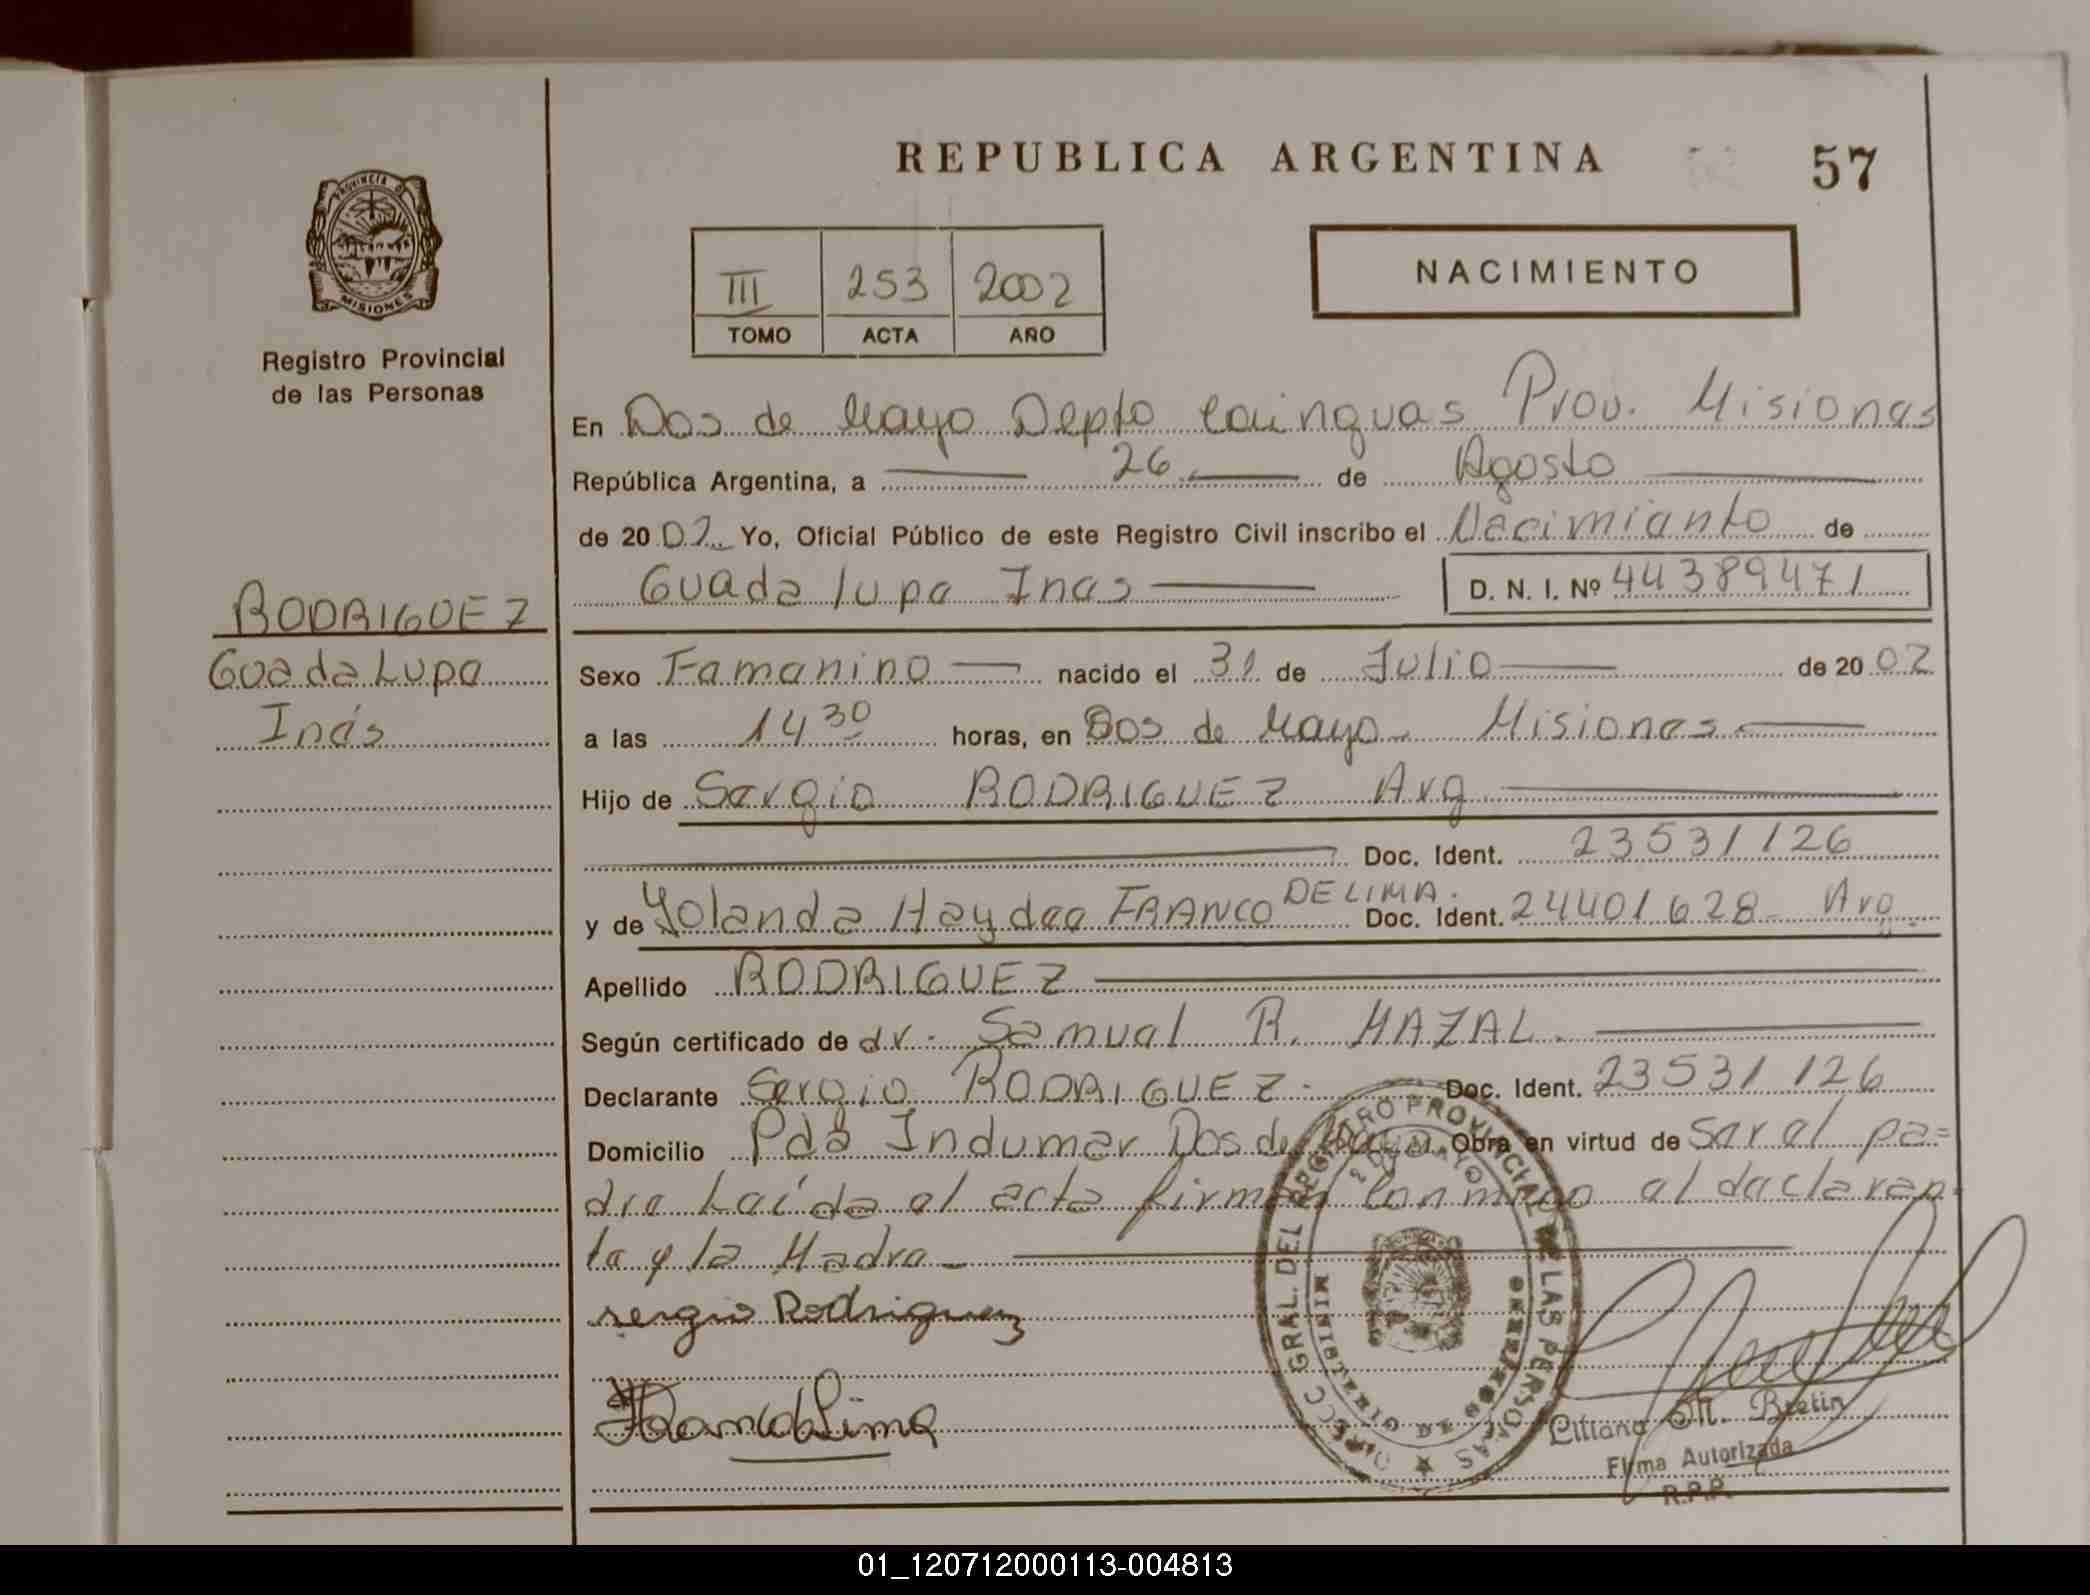 REPUBLICA ARGENTINA
57
PROVINCIA DE
MISIONES
Registro Provincial
de las Personas
III 253 2002
TOMO ACTA AÑO
NACIMIENTO
En Dos de Mayo Depto Cainguas Prov. Misiones
República Argentina, a 26 de Agosto
de 20 02 Yo, Oficial Público de este Registro Civil inscribo el Nacimiento de
Guadalupe Ines
D. N. I. Nº 44389471
RODRIGUEZ
Guadalupe
Inés
Sexo Femenino nacido el 31 de Julio de 20 02
a las 14 30 horas, en Dos de Mayo - Misiones
Hijo de Sergio RODRIGUEZ Arg
Doc. Ident. 23531126
y de Yolanda Haydee FRANCO DE LIMA. Doc. Ident. 24401628 - Arg.
Apellido RODRIGUEZ
Según certificado de dr. Samuel R. MAZAL.
Declarante Sergio RODRIGUEZ. Doc. Ident. 23531126
Domicilio Pda Indumar Dos de Mayo. Obra en virtud de Ser el pa=
dre Leída el acta firman Conmigo el declaran-
te y la Madre -
sergio Rodriguez
DIRECC GRAL. DEL REGISTRO PROVINCIAL DE LAS PERSONAS
2 DE MAYO
MINISTERIO DE GOBIERNO
Liliana M. Bretin
Firma Autorizada
R.P.P.
01_120712000113-004813